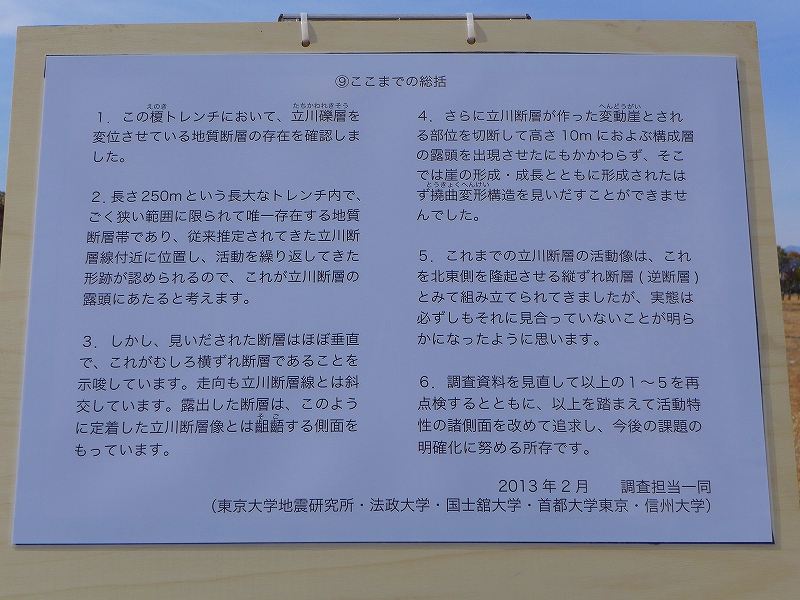 ⑨ここまでの総括
１．この榎トレンチにおいて、立川礫層を
えのき
たちかわれきそう
変位させている地質断層の存在を確認しま
した。
２．長さ250mという長大なトレンチ内で、
ごく狭い範囲に限られて唯一存在する地質
断層帯であり、従来推定されてきた立川断
層線付近に位置し、活動を繰り返してきた
形跡が認められるので、これが立川断層の
露頭にあたると考えます。
３．しかし、見いだされた断層はほぼ垂直
で、これがむしろ横ずれ断層であることを
示唆しています。走向も立川断層線とは斜
交しています。露出した断層は、このよう
に定着した立川断層像とは齟齬する側面を
そご
もっています。
４．さらに立川断層が作った変動崖とされ
へんどうがい
る部位を切断して高さ10mにおよぶ構成層
の露頭を出現させたにもかかわらず、そこ
では崖の形成・成長とともに形成されたは
ず撓曲変形構造を見いだすことができませ
とうきょくへんけい
んでした。
５．これまでの立川断層の活動像は、これ
を北東側を隆起させる縦ずれ断層(逆断層)
とみて組み立てられてきましたが、実態は
必ずしもそれに見合っていないことが明ら
かになったように思います。
６．調査資料を見直して以上の１～５を再
点検するとともに、以上を踏まえて活動特
性の諸側面を改めて追求し、今後の課題の
明確化に努める所存です。
2013年2月　調査担当一同
（東京大学地震研究所・法政大学・国士舘大学・首都大学東京・信州大学）